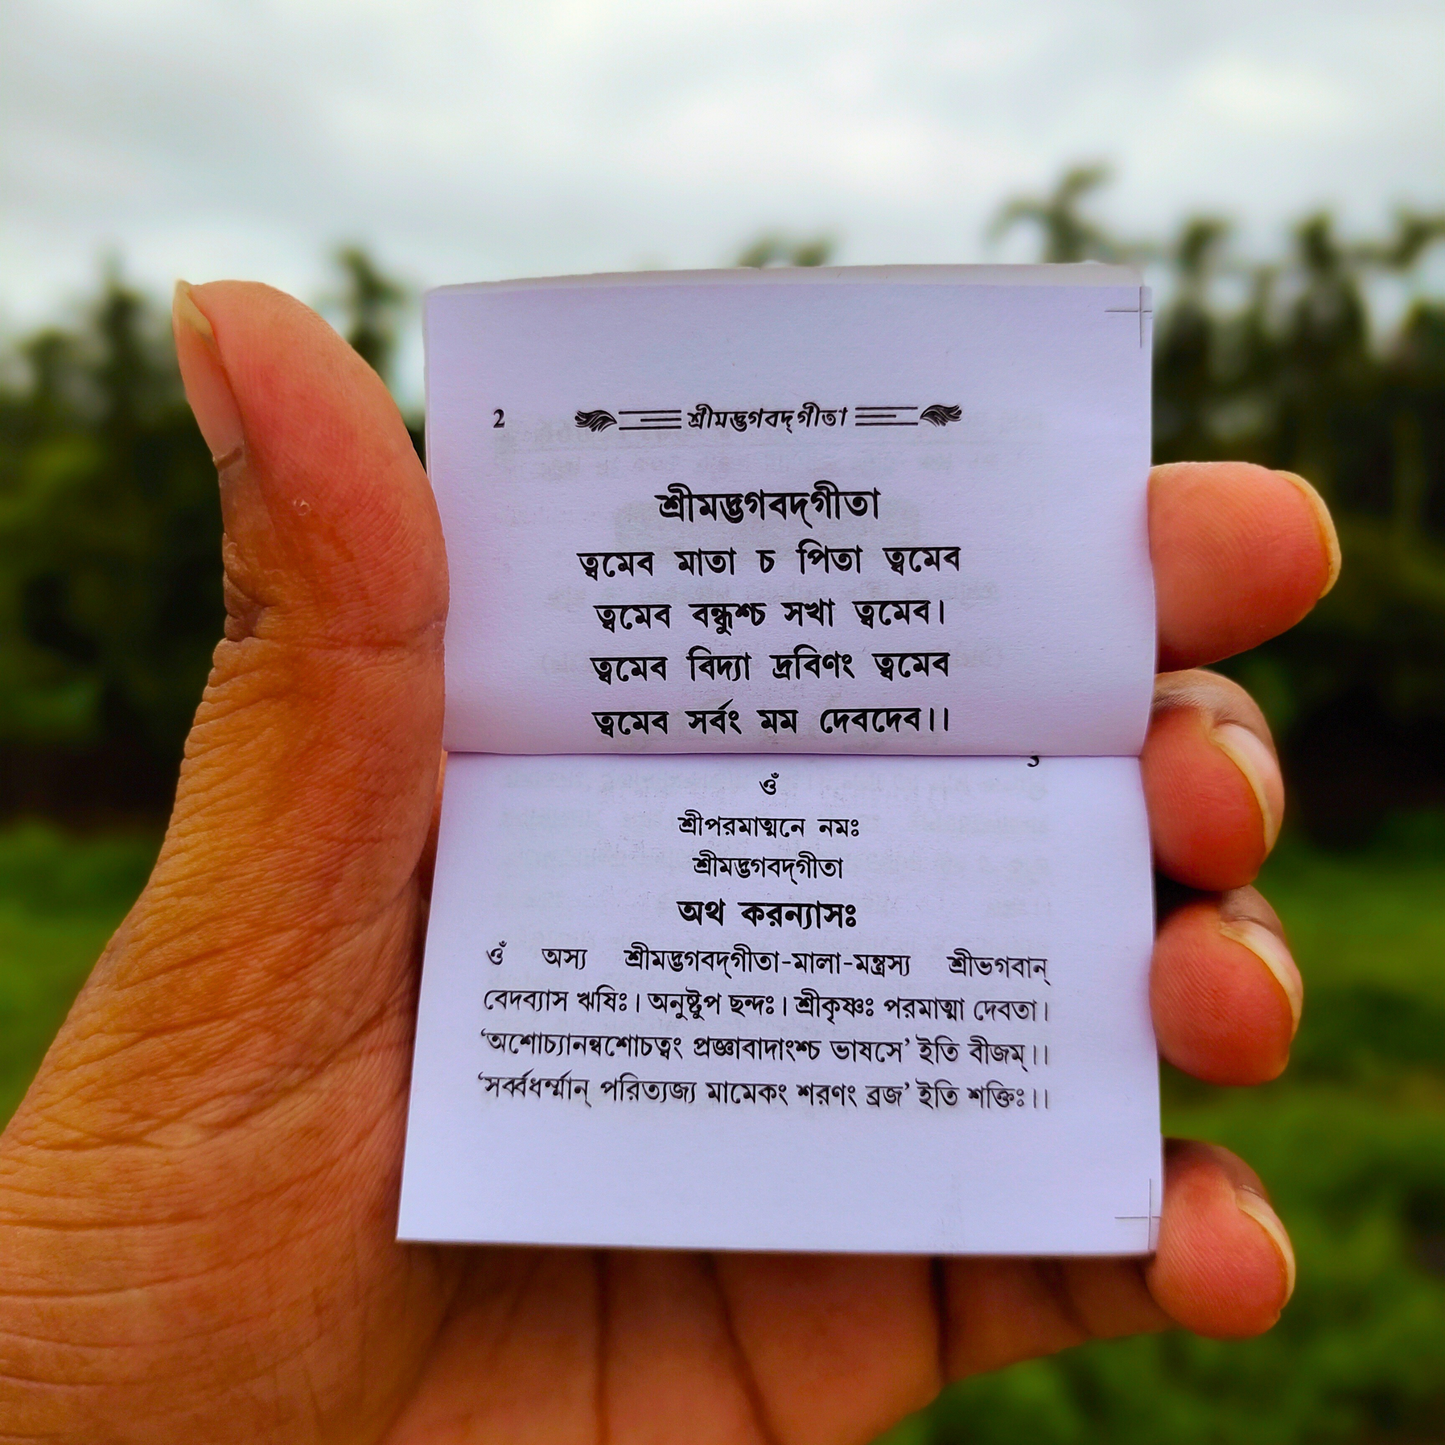 2 শ্রীমদ্ভগবদ্‌গীতা
শ্রীমদ্ভগবদ্‌গীতা
ত্বমেব মাতা চ পিতা ত্বমেব
ত্বমেব বন্ধুশ্চ সখা ত্বমেব।
ত্বমেব বিদ্যা দ্রবিণং ত্বমেব
ত্বমেব সর্বং মম দেবদেব।।
ওঁ
শ্রীপরমাত্মনে নমঃ
শ্রীমদ্ভগবদ্‌গীতা
অথ করন্যাসঃ
ওঁ অস্য শ্রীমদ্ভগবদ্‌গীতা-মালা-মন্ত্রস্য শ্রীভগবান্
বেদব্যাস ঋষিঃ। অনুষ্টুপ ছন্দঃ। শ্রীকৃষ্ণঃ পরমাত্মা দেবতা।
‘অশোচ্যানন্বশোচত্বং প্রজ্ঞাবাদাংশ্চ ভাষসে’ ইতি বীজম্।।
‘সর্ব্বধর্ম্মান্ পরিত্যজ্য মামেকং শরণং ব্রজ’ ইতি শক্তিঃ।।